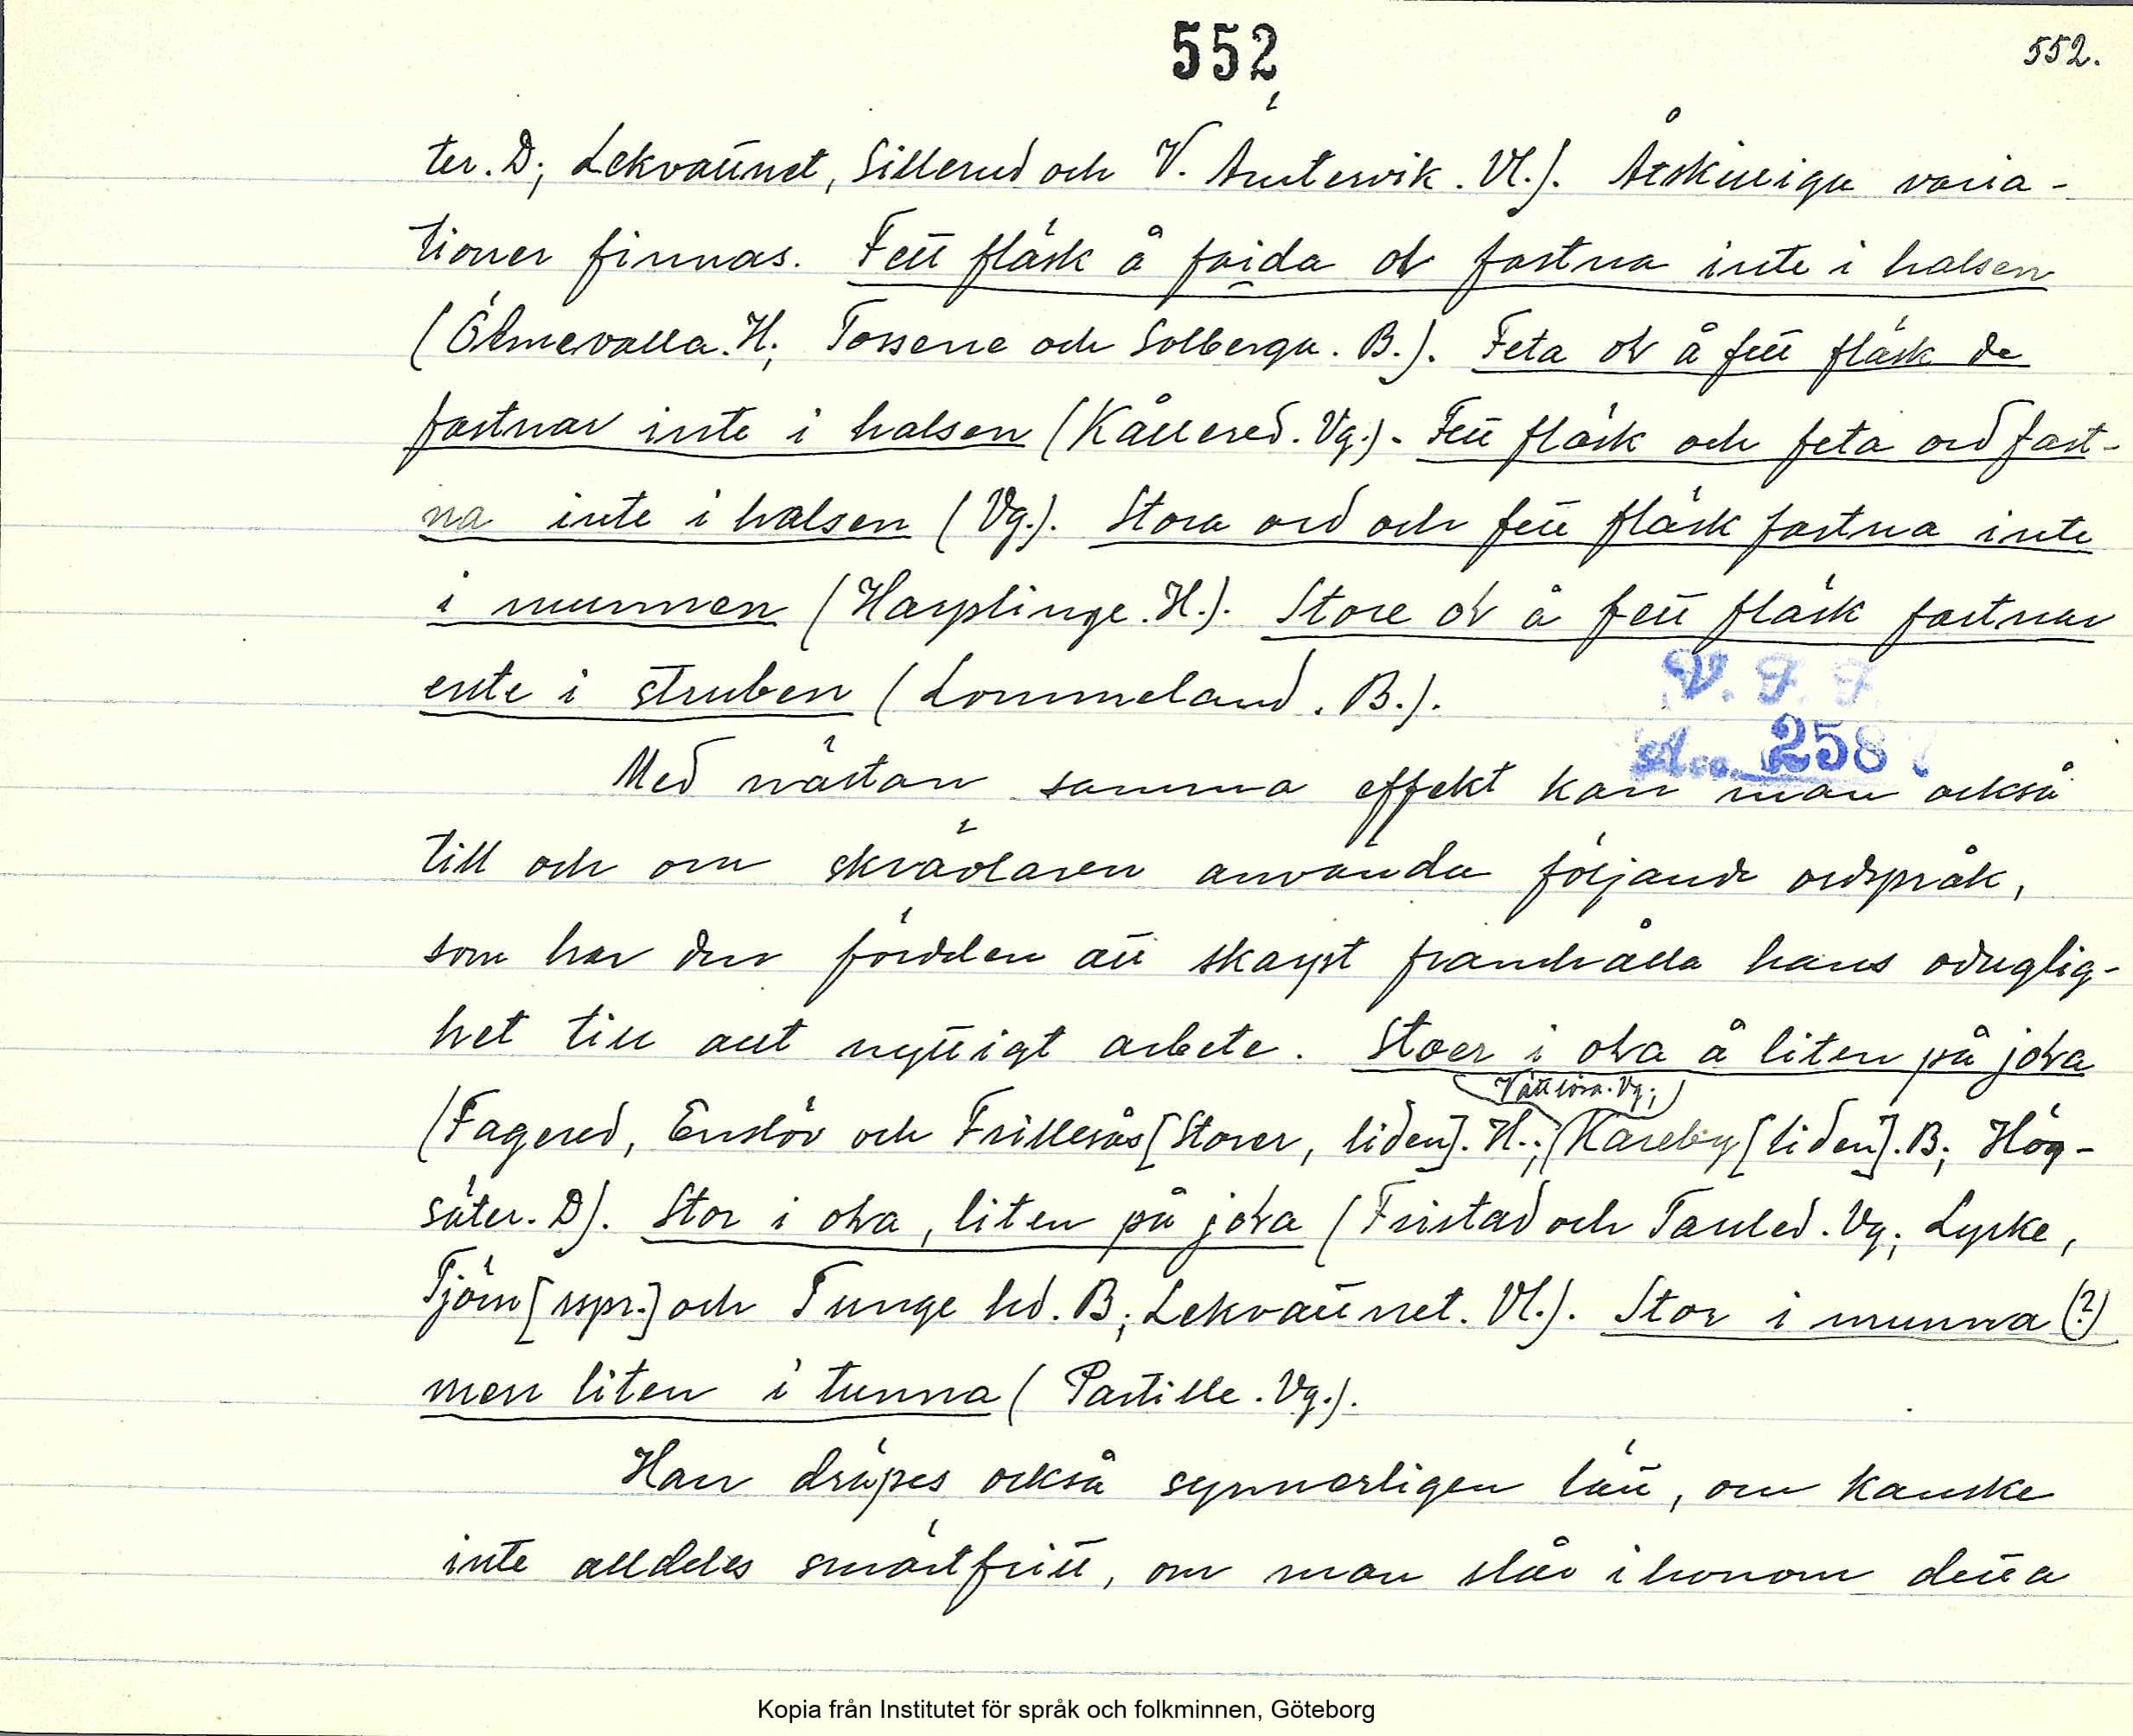 552
552.
ter. D; Lekvattnet, Sillerud och V. Ämtervik. Vl.). Åtskilliga varia-
tioner finnas. Fett fläsk å faida ol fastna inte i halsen
(Ölmevalla. H; Tossene och Solberga. B.). Feta ol å fett fläsk de
fastnar inte i halsen (Kållered. Vg.). Fett fläsk och feta ord fast-
na inte i halsen (Vg.). Stora ord och fett fläsk fastna inte
i munnen (Harplinge. H.). Store ol å fett fläsk fastnar
ente i struben (Lommeland. B.).
V. F. F.
Acc. 258
Med nästan samma effekt kan man också
till och om skrävlaren använda följande ordspråk,
som har den fördelen att skarpt framhålla hans oduglig-
het till allt nyttigt arbete. Stoer i ola å liten på jola
Vättlösa. Vg.;
(Fagered, Enslöv och Frillesås [Storer, liden]. H.; Kareby [liden]. B; Hög-
säter. D). Stor i ola, liten på jola (Fristad och Tarsled. Vg; Lyrke,
Tjörn [rspr.] och Tunge hd. B; Lekvattnet. Vl.). Stor i munna (?)
men liten i tunna (Partille. Vg.).
Han dräpes också synnerligen lätt, om kanske
inte alldeles smärtfritt, om man slår i honom detta
Kopia från Institutet för språk och folkminnen, Göteborg